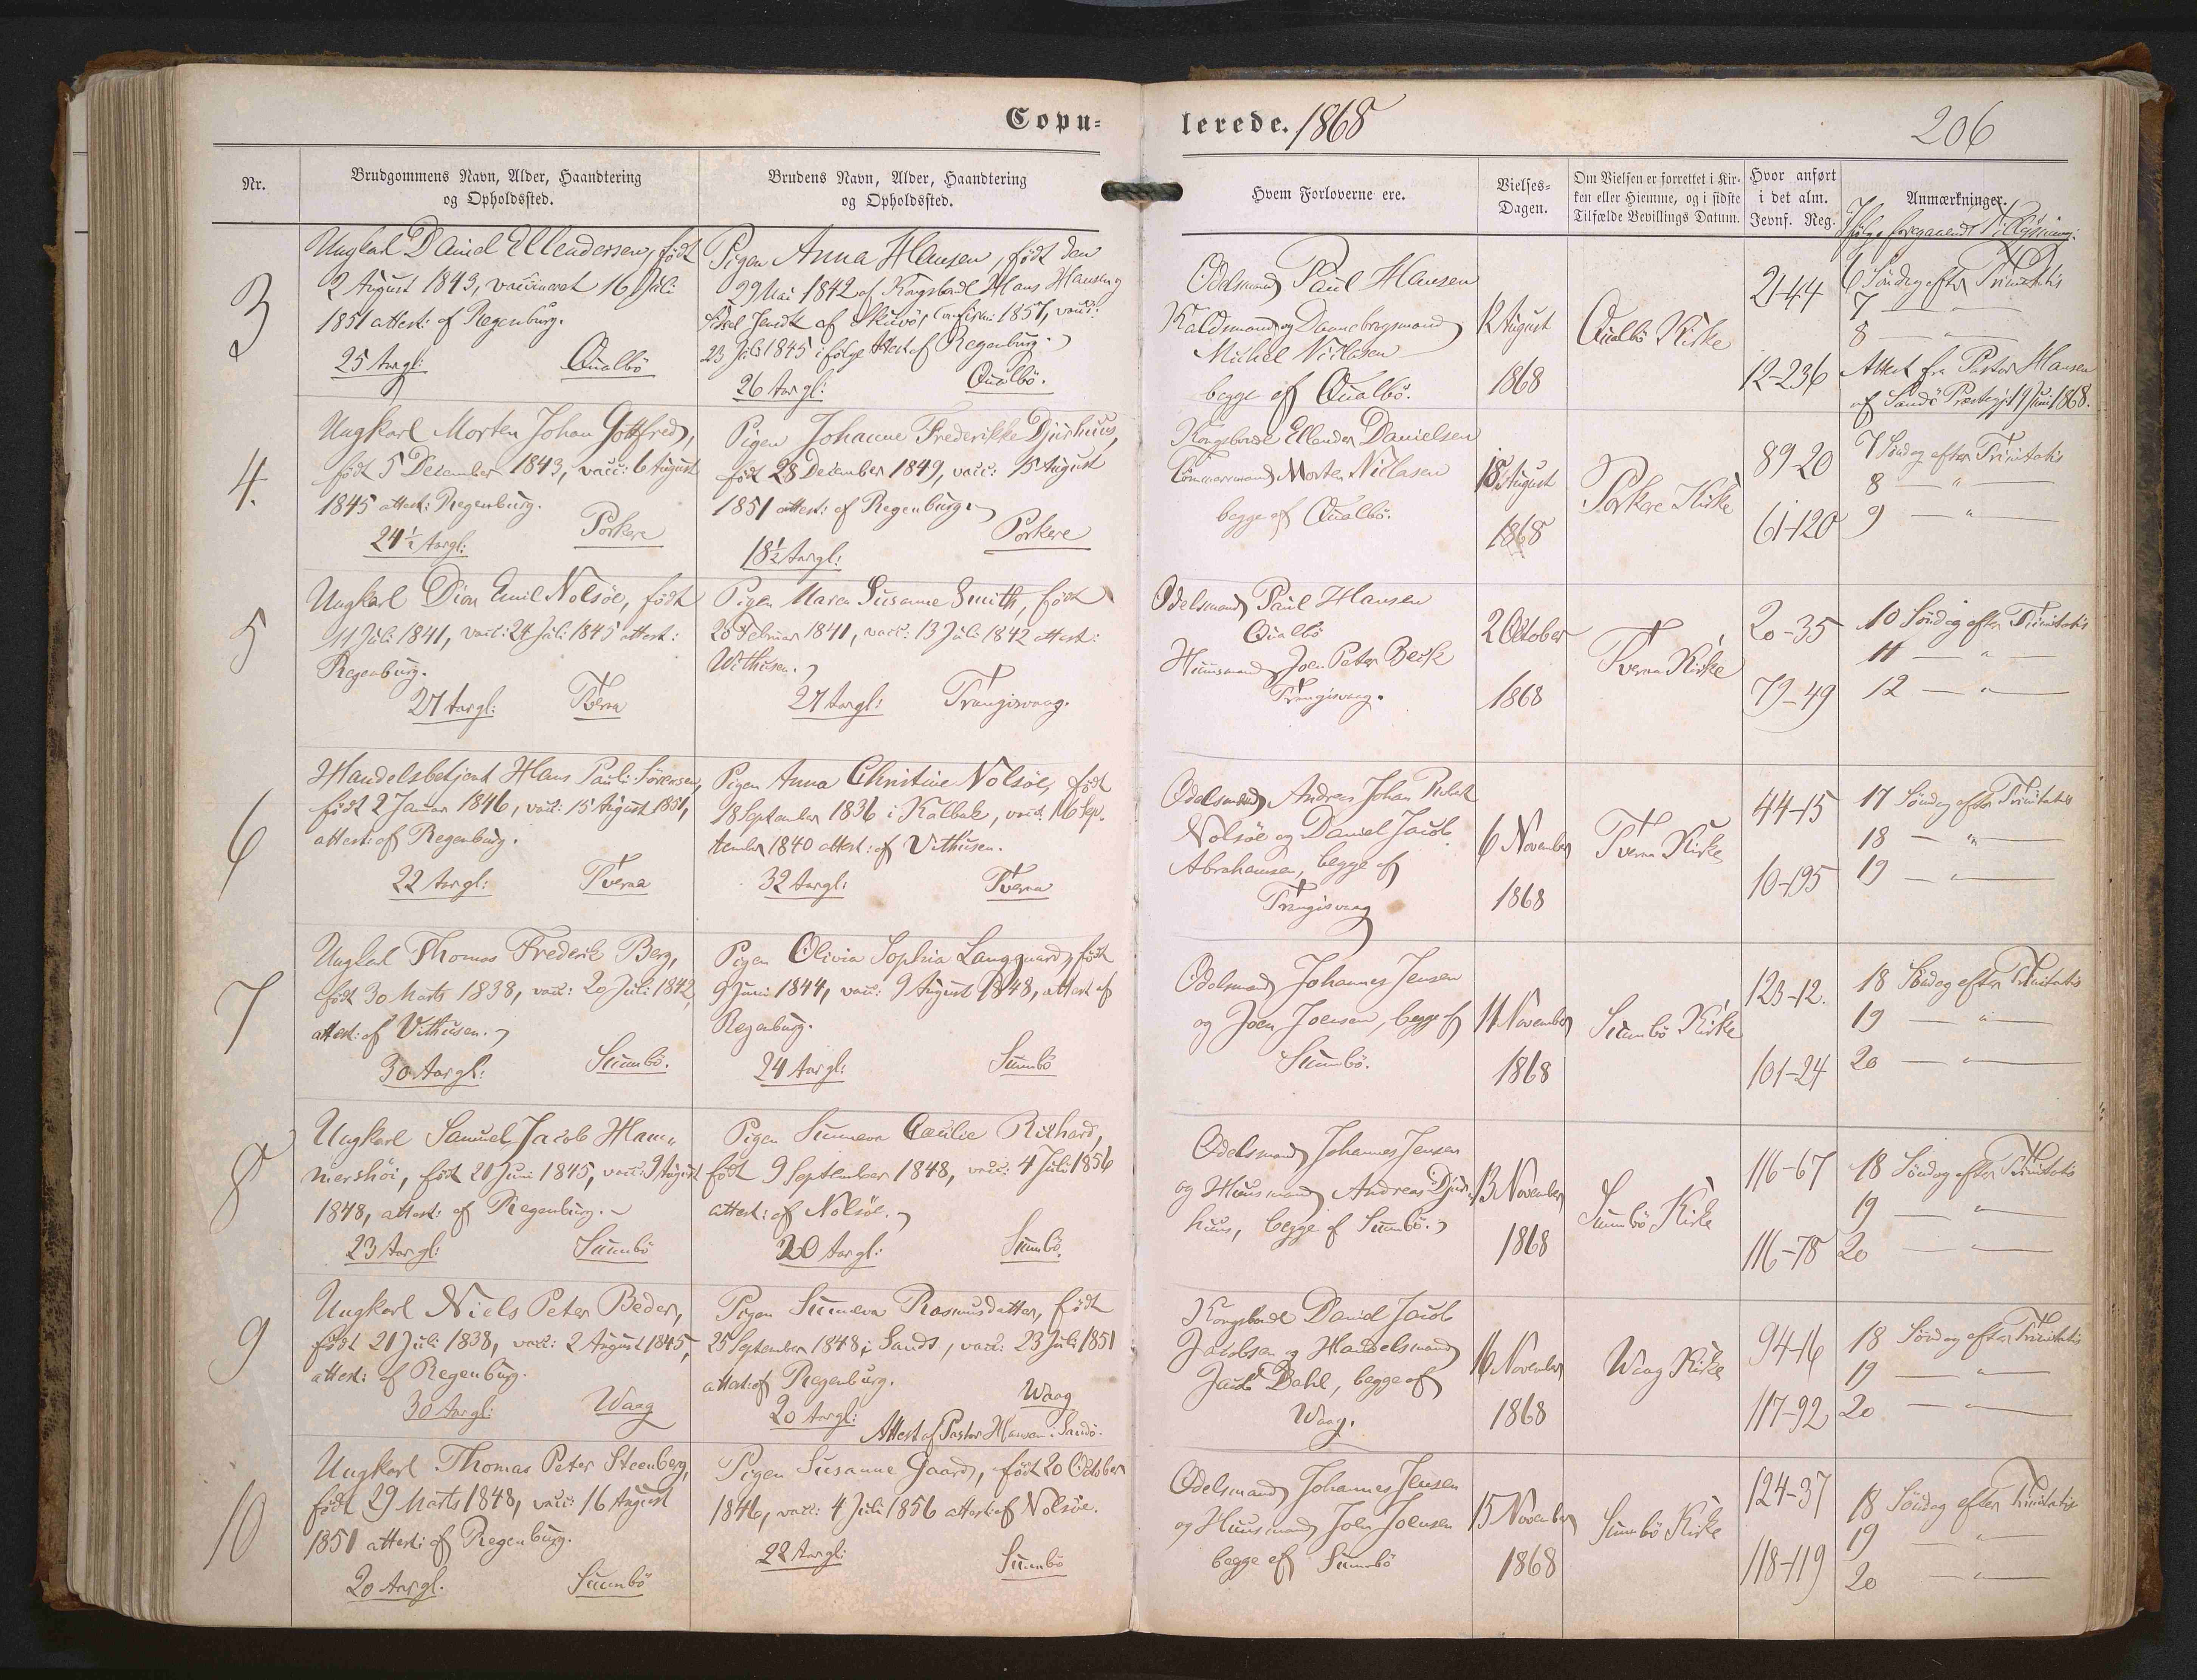 Copu-
lerede. 1868
206
Nr.
Brudgommens Navn, Alder, Haandtering
og Opholdssted.
Brudens Navn, Alder, Haandtering
og Opholdssted.
Hvem Forloverne ere.
Vielses-
Dagen.
Om Vielsen er forrettet i Kir-
ken eller Hjemme, og i sidste
Tilfælde Bevillings Datum.
Hvor anført
i det alm.
Jevnf. Reg.
Anmærkninger.
Ifølge foregaaende Tillysning:
3
Ungkarl Daniel Ellendersen, født
2 August 1843, vaccineret 16 Juli
1851 attest: af Regenburg.
25 Aar gl: Qualbö
Pigen Anna Hansen, født den
29 Mai 1842 af Kongsbonde Hans Hansen og
af Skuvö, Confirm: 1857, vacc:
23 Juli 1845 ifølge Attest af Regenburg.
26 Aar gl: Qualbö.
Odelsmand Paul Hansen
og Dannebrogsmand
Michel Niclasen
begge af Qualbö.
12 August
1868
Qualbö Kirke
21-44
12-236
6 Søndag efter Trinitatis
7 — " —
8 — " —
Attest fra Pastor Hansen
af Sandö Præstegj: 19 Juni 1868.
4.
Ungkarl Morten Johan Gottfred,
født 5 December 1843, vacc: 6 August
1845 attest: Regenburg.
24½ Aar gl: Porkere
Pigen Johanne Frederikke Djurhuus,
født 28 December 1849, vacc: 15 August
1851 attest: af Regenburg.
18½ Aar gl: Porkere
Kongsbonde Ellender Danielsen
Tömmermand Morten Niclasen
begge af Qualbö.
18 August
1868
Porkere Kirke
89-20
61-120
7 Søndag efter Trinitatis
8 — " —
9 — " —
5
Ungkarl Dion Emil Nolsöe, født
11 Juli 1841, vacc: 24 Juli 1845 attest:
Regenburg.
27 Aar gl: Tveraa
Pigen Maren Susanne Smith, født
26 Februar 1841, vacc: 13 Juli 1842 attest:
Withusen.
27 Aar gl: Trangisvaag.
Odelsmand Paul Hansen
Qualbö
Huusmand Joen Peter Beck
Trangisvaag.
2 October
1868
Tveraa Kirke
20-35
79-49
10 Søndag efter Trinitatis
11 — " —
12 — " —
6
Handelsbetjent Hans Pauli Sörensen,
født 2 Januar 1846, vacc: 15 August 1851,
attest: af Regenburg.
22 Aar gl: Tveraa
Pigen Anna Christine Nolsöe, født
18 September 1836 i Kalbak, vacc. 16 Sep-
tember 1840 attest: af Vithusen.
32 Aar gl: Tveraa
Odelsmand Andreas Johan
Nolsöe og Daniel Jacob
Abrahamsen, begge af
Trangisvaag
6 November
1868
Tveraa Kirke
44-15
10-195
17 Søndag efter Trinitatis
18 — " —
19 — " —
7
Ungkarl Thomas Frederik Berg,
født 30 Marts 1838, vacc: 20 Juli 1842,
attest: af Vithusen.
30 Aar gl: Sumbö.
Pigen Olivia Sophia Langgaard, født
9 Juni 1844, vacc: 9 August 1848, attest af
Regenburg.
24 Aar gl: Sumbö
Odelsmand Johannes Jensen
og Joen Joensen, begge af
Sumbö.
11 November
1868
Sumbö Kirke
123-12.
101-24
18 Søndag efter Trinitatis
19 — " —
20 — " —
8
Ungkarl Samuel Jacob Ham-
mershöi, født 21 Juni 1845, vacc: 9 August
1848, attest: af Regenburg.
23 Aar gl: Sumbö
Pigen Sunneva Cecilie Richard,
født 9 September 1848, vacc: 4 Juli 1856
attest: af Nolsöe.
20 Aar gl: Sumbö.
Odelsmand Johannes Jensen
og Huusmand Andreas Djur-
huus, begge af Sumbö.
13 November
1868
Sumbö Kirke
116-67
116-78
18 Søndag efter Trinitatis
19 — " —
20 — " —
9
Ungkarl Niels Peter Beder,
født 21 Juli 1838, vacc: 2 August 1845,
attest: af Regenburg.
30 Aar gl: Waag
Pigen Sunneva Rasmusdatter, født
25 September 1848 i Sandö, vacc: 23 Juli 1851
attest: af Regenburg.
20 Aar gl: Waag
Attest af Pastor Hansen. Sandö.
Kongsbonde Daniel Jacob
Jacobsen og Handelsmand
Jacob Dahl, begge af
Waag.
16 November
1868
Waag Kirke
94-16
117-92
18 Søndag efter Trinitatis
19 — " —
20 — " —
10
Ungkarl Thomas Peter Steenberg,
født 29 Marts 1848, vacc: 16 August
1851 attest: af Regenburg.
20 Aar gl. Sumbö
Pigen Susanne Gaard, født 20 October
1846, vacc: 4 Juli 1856 attest: af Nolsöe.
22 Aar gl: Sumbö
Odelsmand Johannes Jensen
og Huusmand Joen Joensen
begge af Sumbö
15 November
1868
Sumbö Kirke
124-37
118-119
18 Søndag efter Trinitatis
19 — " —
20 — " —